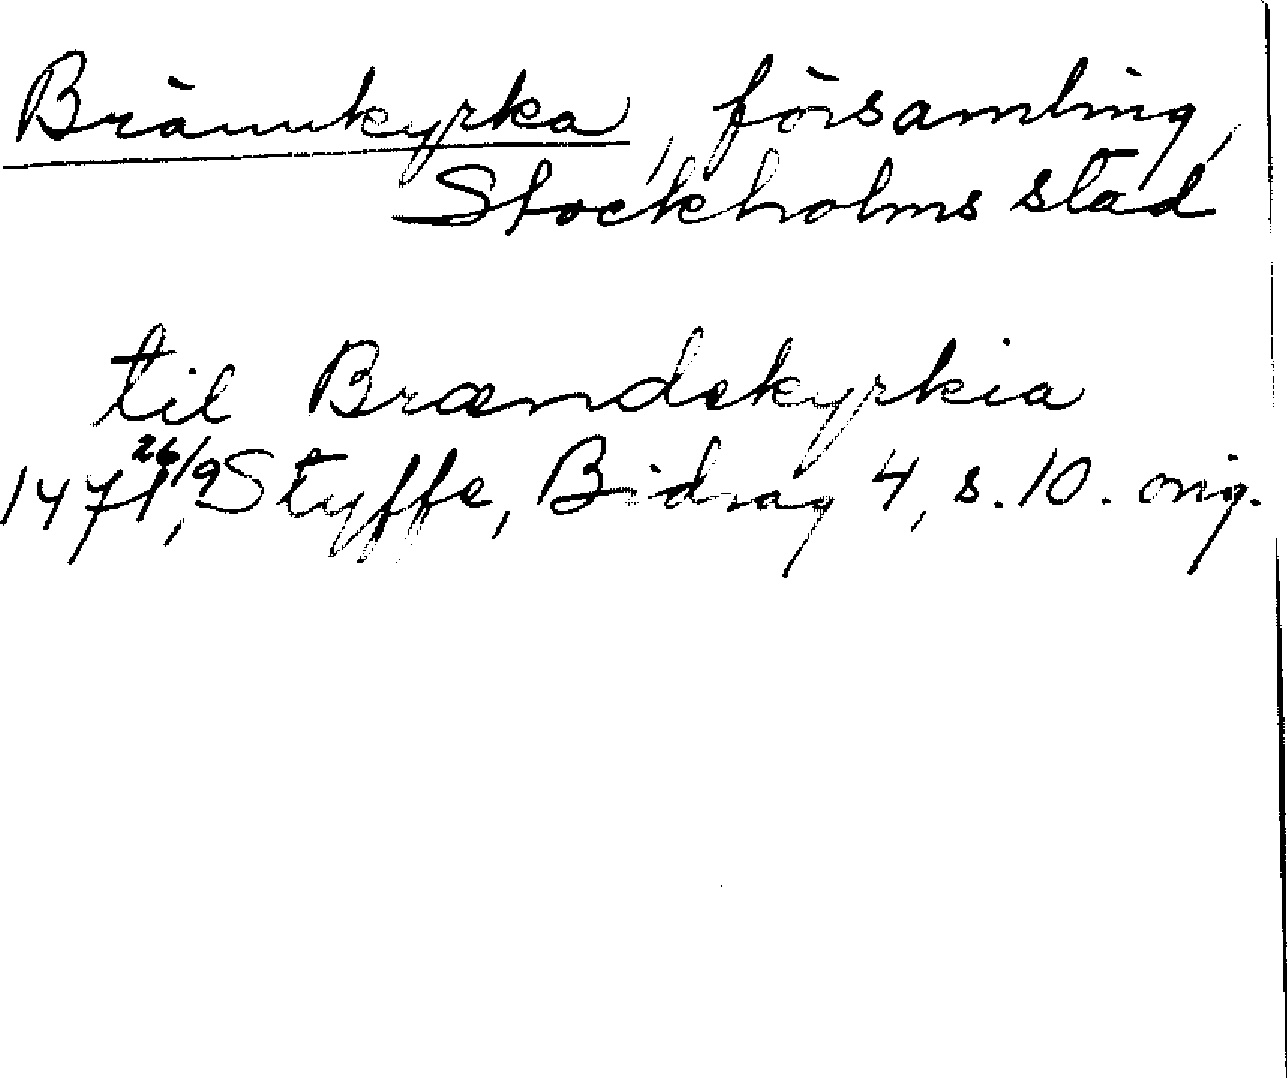 Brännkyrka, församling,
Stockholms stad
til Brændekyrkia
1471 26/9, Styffe, Bidrag 4, s. 10. orig.